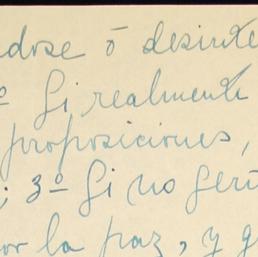 dose ó desinte
º Si realmente
proposiciones,
; 3º Si no serí
or la paz, y g